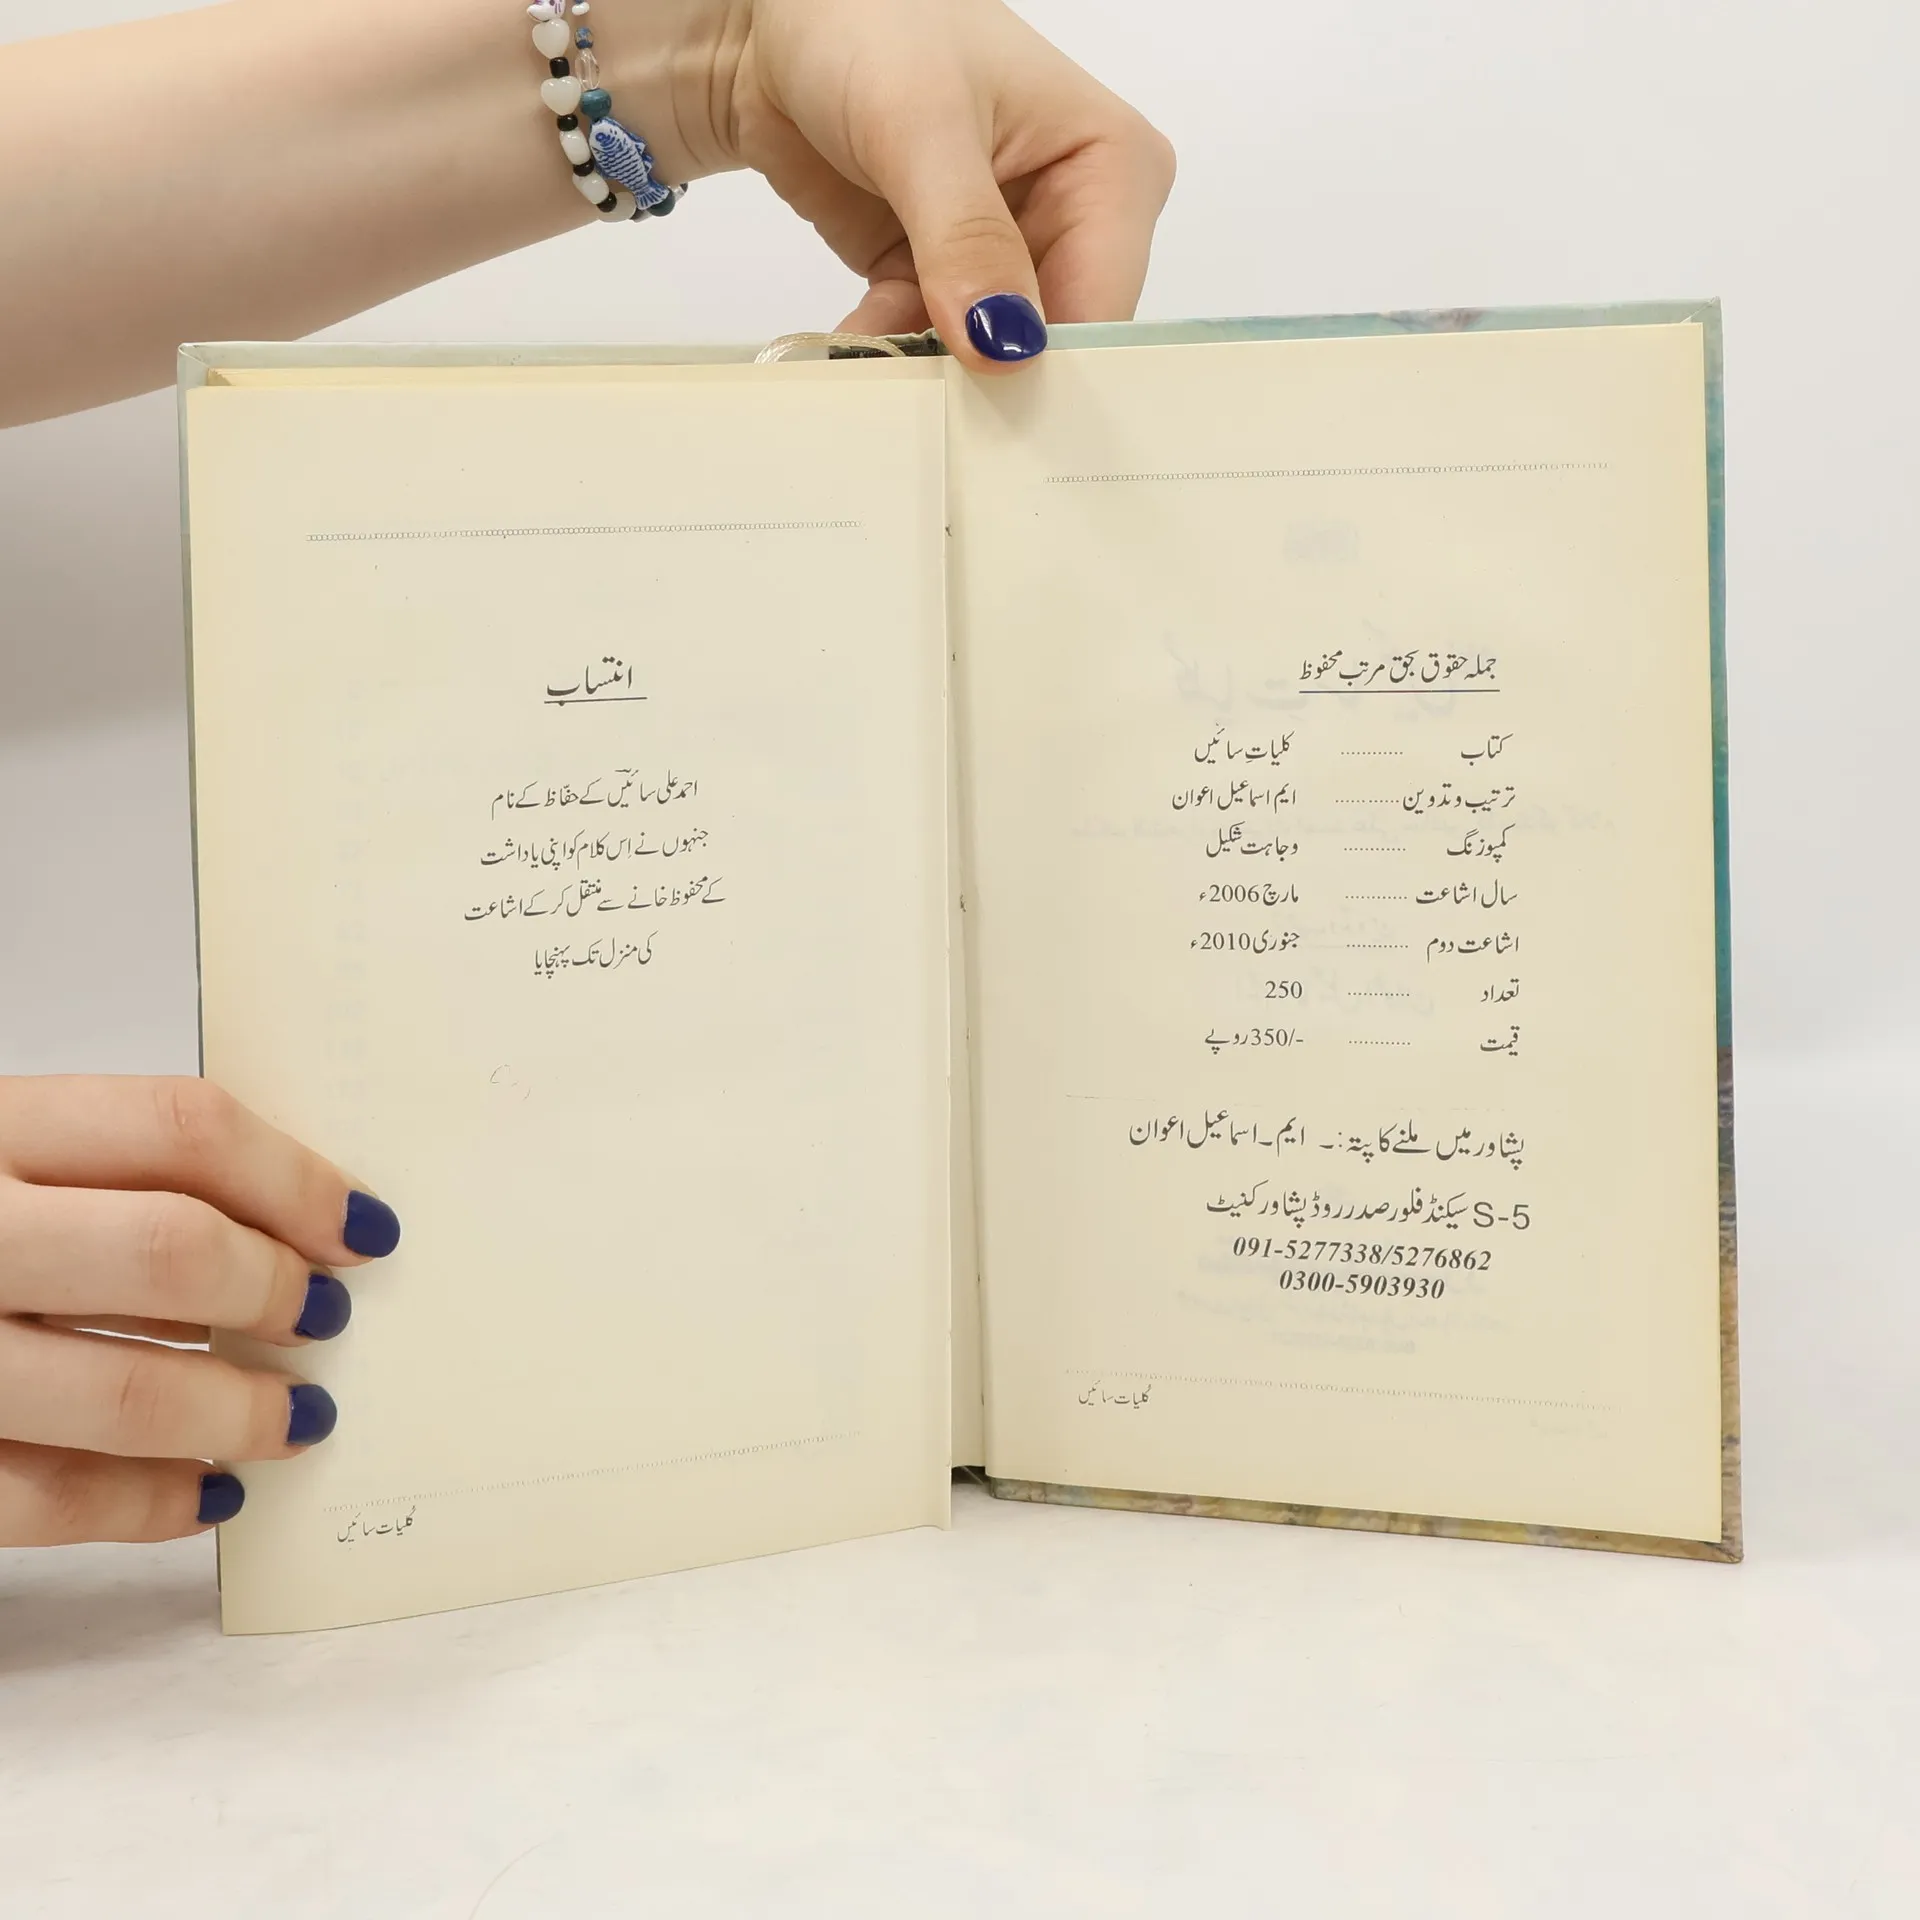 جملہ حقوق بحق مرتب محفوظ
کتاب ............ کلیاتِ سائیں
ترتیب و تدوین ............ ایم اسماعیل اعوان
کمپوزنگ ............ وجاہت شکیل
سال اشاعت ............ مارچ 2006ء
اشاعت دوم ............ جنوری 2010ء
تعداد ............ 250
قیمت ............ 350/- روپے
پشاور میں ملنے کا پتہ:۔ ایم۔اسماعیل اعوان
S-5 سیکنڈ فلور صدر روڈ پشاور کنیٹ
091-5277338/5276862
0300-5903930
کُلیات سائیں
انتساب
احمد علی سائیںؒ کے حفّاظ کے نام
جنہوں نے اِس کلام کو اپنی یاداشت
کے محفوظ خانے سے منتقل کر کے اشاعت
کی منزل تک پہنچایا
کُلیات سائیں